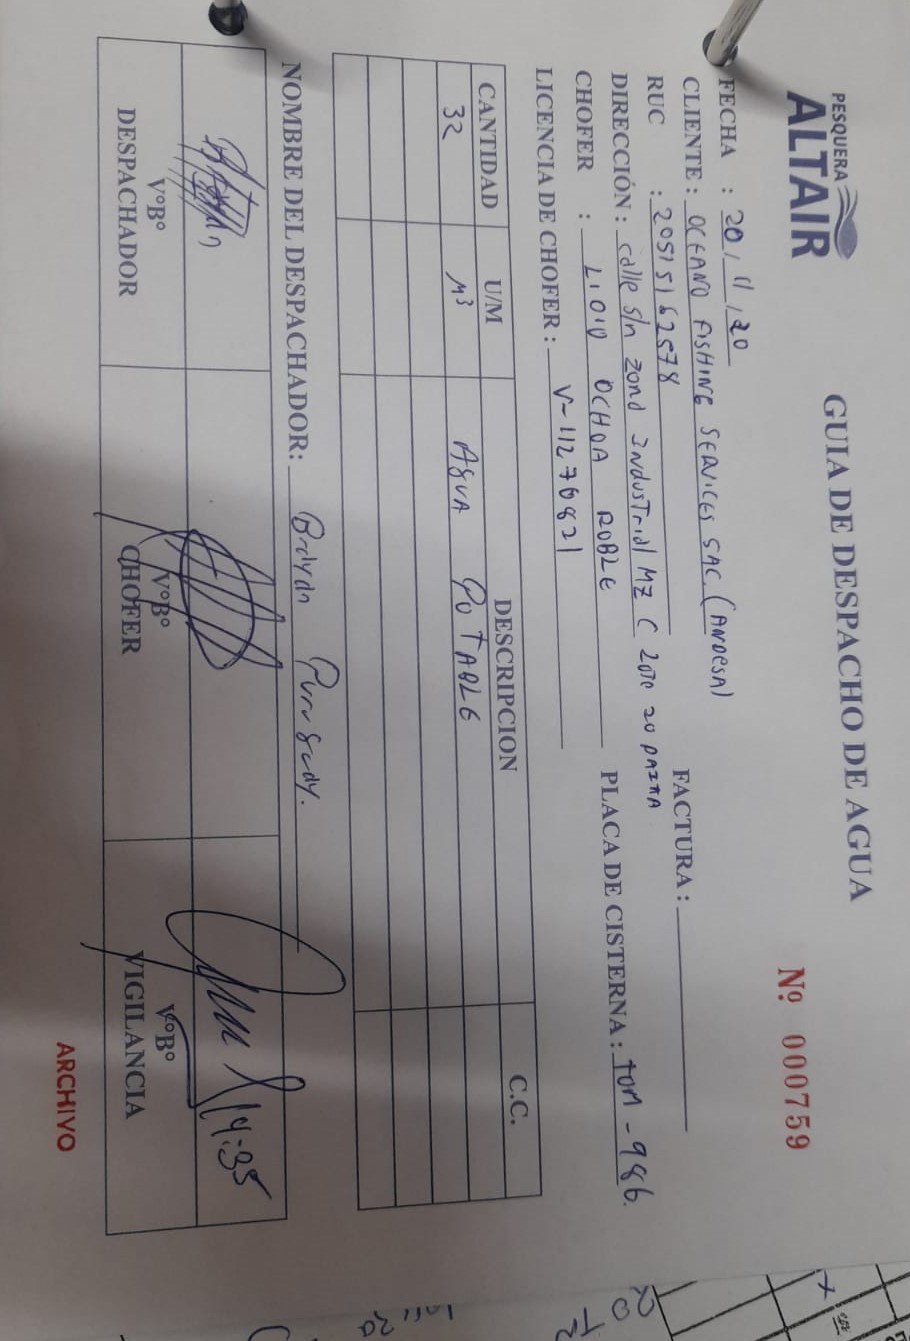 PESQUERA
ALTAIR
GUIA DE DESPACHO DE AGUA
Nº 000759
FECHA : 20 / 11 / 20
CLIENTE : OCEANO FISHING SERVICES SAC (ANDESA)
FACTURA :
RUC : 20515162578
DIRECCIÓN : calle s/n zona Industrial MZ C lote 20 PAITA
CHOFER : OCHOA ROBLE
PLACA DE CISTERNA : TOM - 986
LICENCIA DE CHOFER : V-11276821
CANTIDAD U/M DESCRIPCION C.C.
32 M³ AGUA POTABLE
NOMBRE DEL DESPACHADOR: Brayan
14:35
VºBº VºBº VºBº
DESPACHADOR CHOFER VIGILANCIA
ARCHIVO